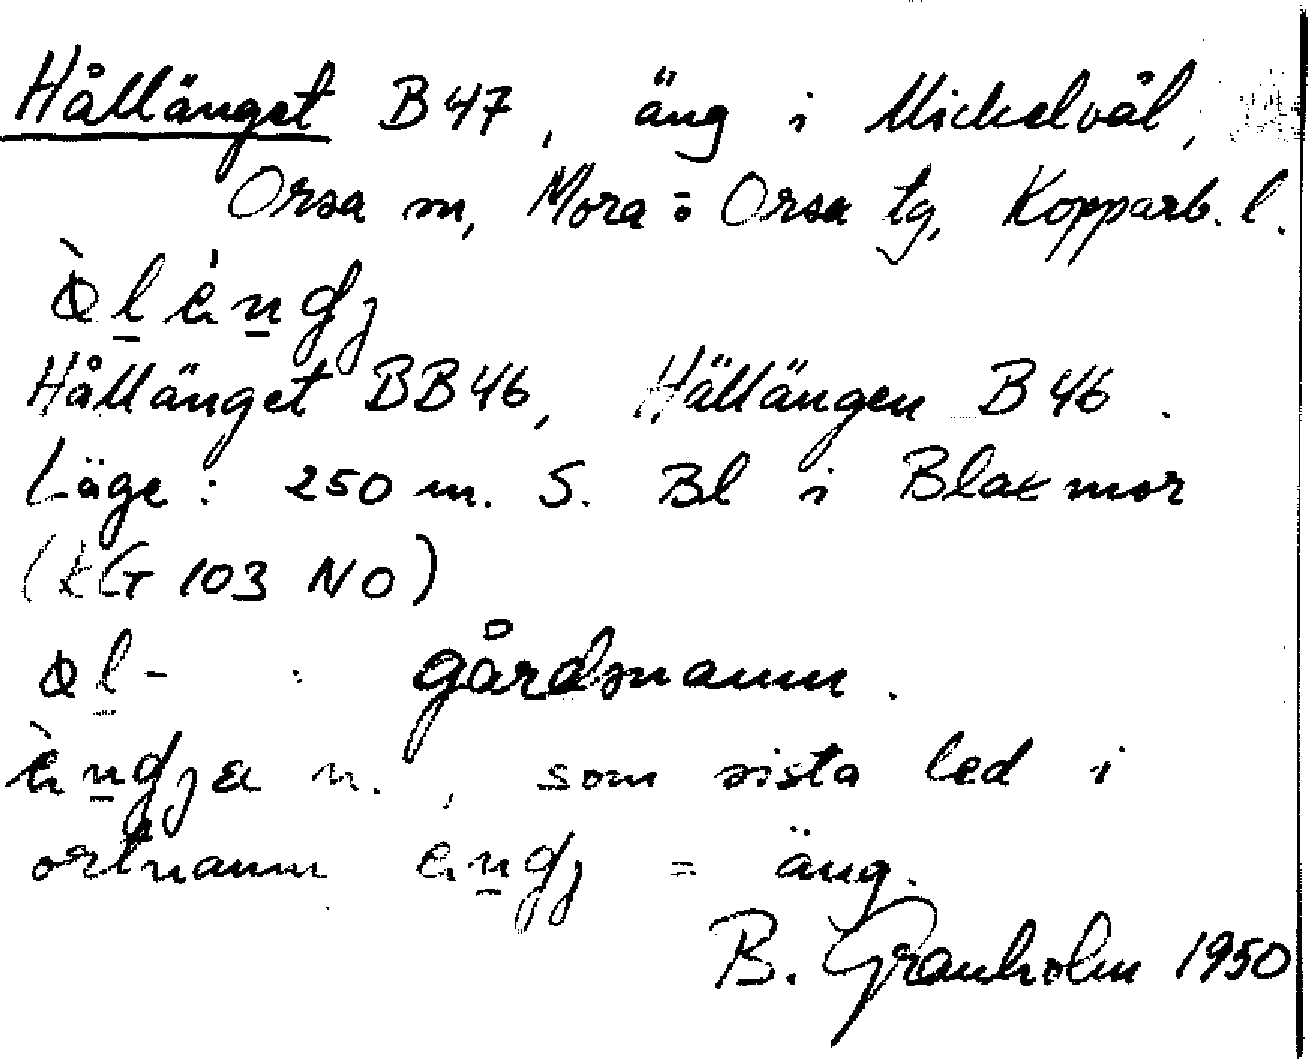 Hållänget B47, äng i Mickelvål,
Orsa sn, Mora o Orsa tg, Kopparb. l.
Hållänget BB46, Hällängen B46.
Läge: 250 m. S. Bl i Blaxmor
(KG 103 NO)
gårdsnamn.
n., som sista led i
ortnamn = äng.
B. Granholm 1950